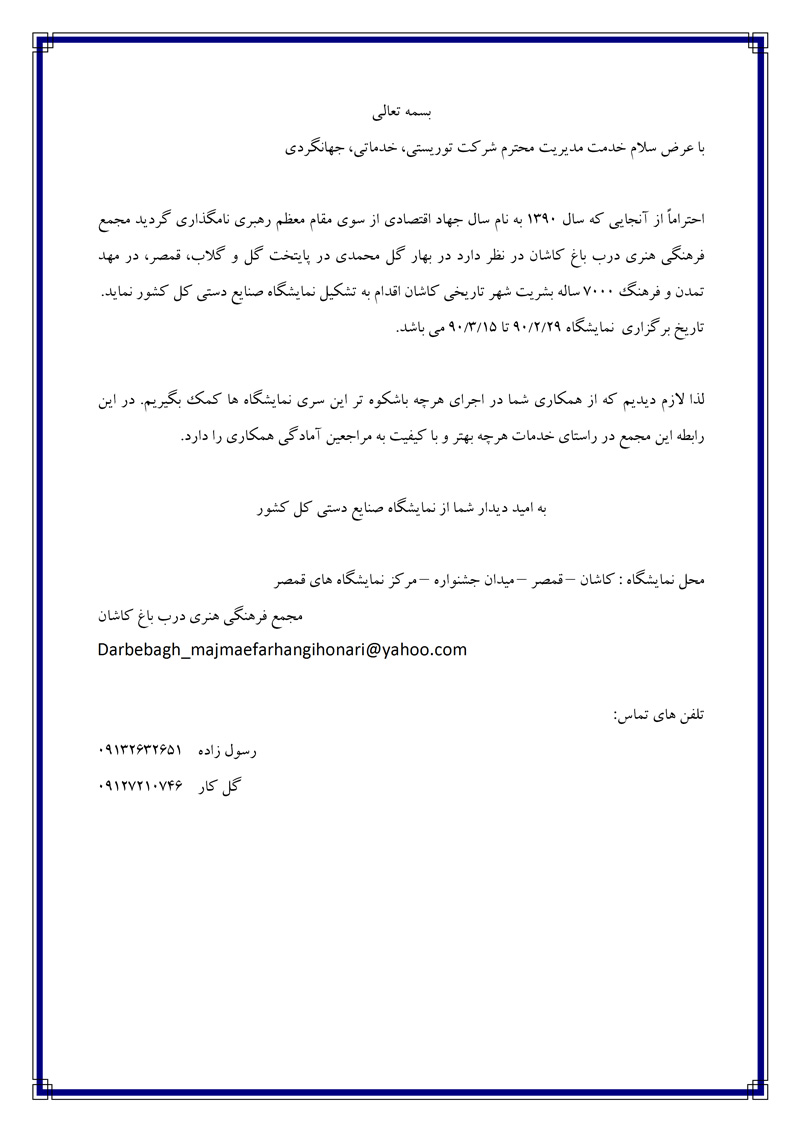 بسمه تعالی
با عرض سلام خدمت مدیریت محترم شرکت توریستی، خدماتی، جهانگردی
احتراماً از آنجایی که سال ۱۳۹۰ به نام سال جهاد اقتصادی از سوی مقام معظم رهبری نامگذاری گردید مجمع
فرهنگی هنری درب باغ کاشان در نظر دارد در بهار گل محمدی در پایتخت گل و گلاب، قمصر، در مهد
تمدن و فرهنگ ۷۰۰۰ ساله بشریت شهر تاریخی کاشان اقدام به تشکیل نمایشگاه صنایع دستی کل کشور نماید.
تاریخ برگزاری نمایشگاه ۹۰/۲/۲۹ تا ۹۰/۳/۱۵ می باشد.
لذا لازم دیدیم که از همکاری شما در اجرای هرچه باشکوه تر این سری نمایشگاه ها کمک بگیریم. در این
رابطه این مجمع در راستای خدمات هرچه بهتر و با کیفیت به مراجعین آمادگی همکاری را دارد.
به امید دیدار شما از نمایشگاه صنایع دستی کل کشور
محل نمایشگاه : کاشان – قمصر – میدان جشنواره – مرکز نمایشگاه های قمصر
مجمع فرهنگی هنری درب باغ کاشان
Darbebagh_majmaefarhangihonari@yahoo.com
تلفن های تماس:
رسول زاده ۰۹۱۳۲۶۳۲۶۵۱
گل کار ۰۹۱۲۷۲۱۰۷۴۶